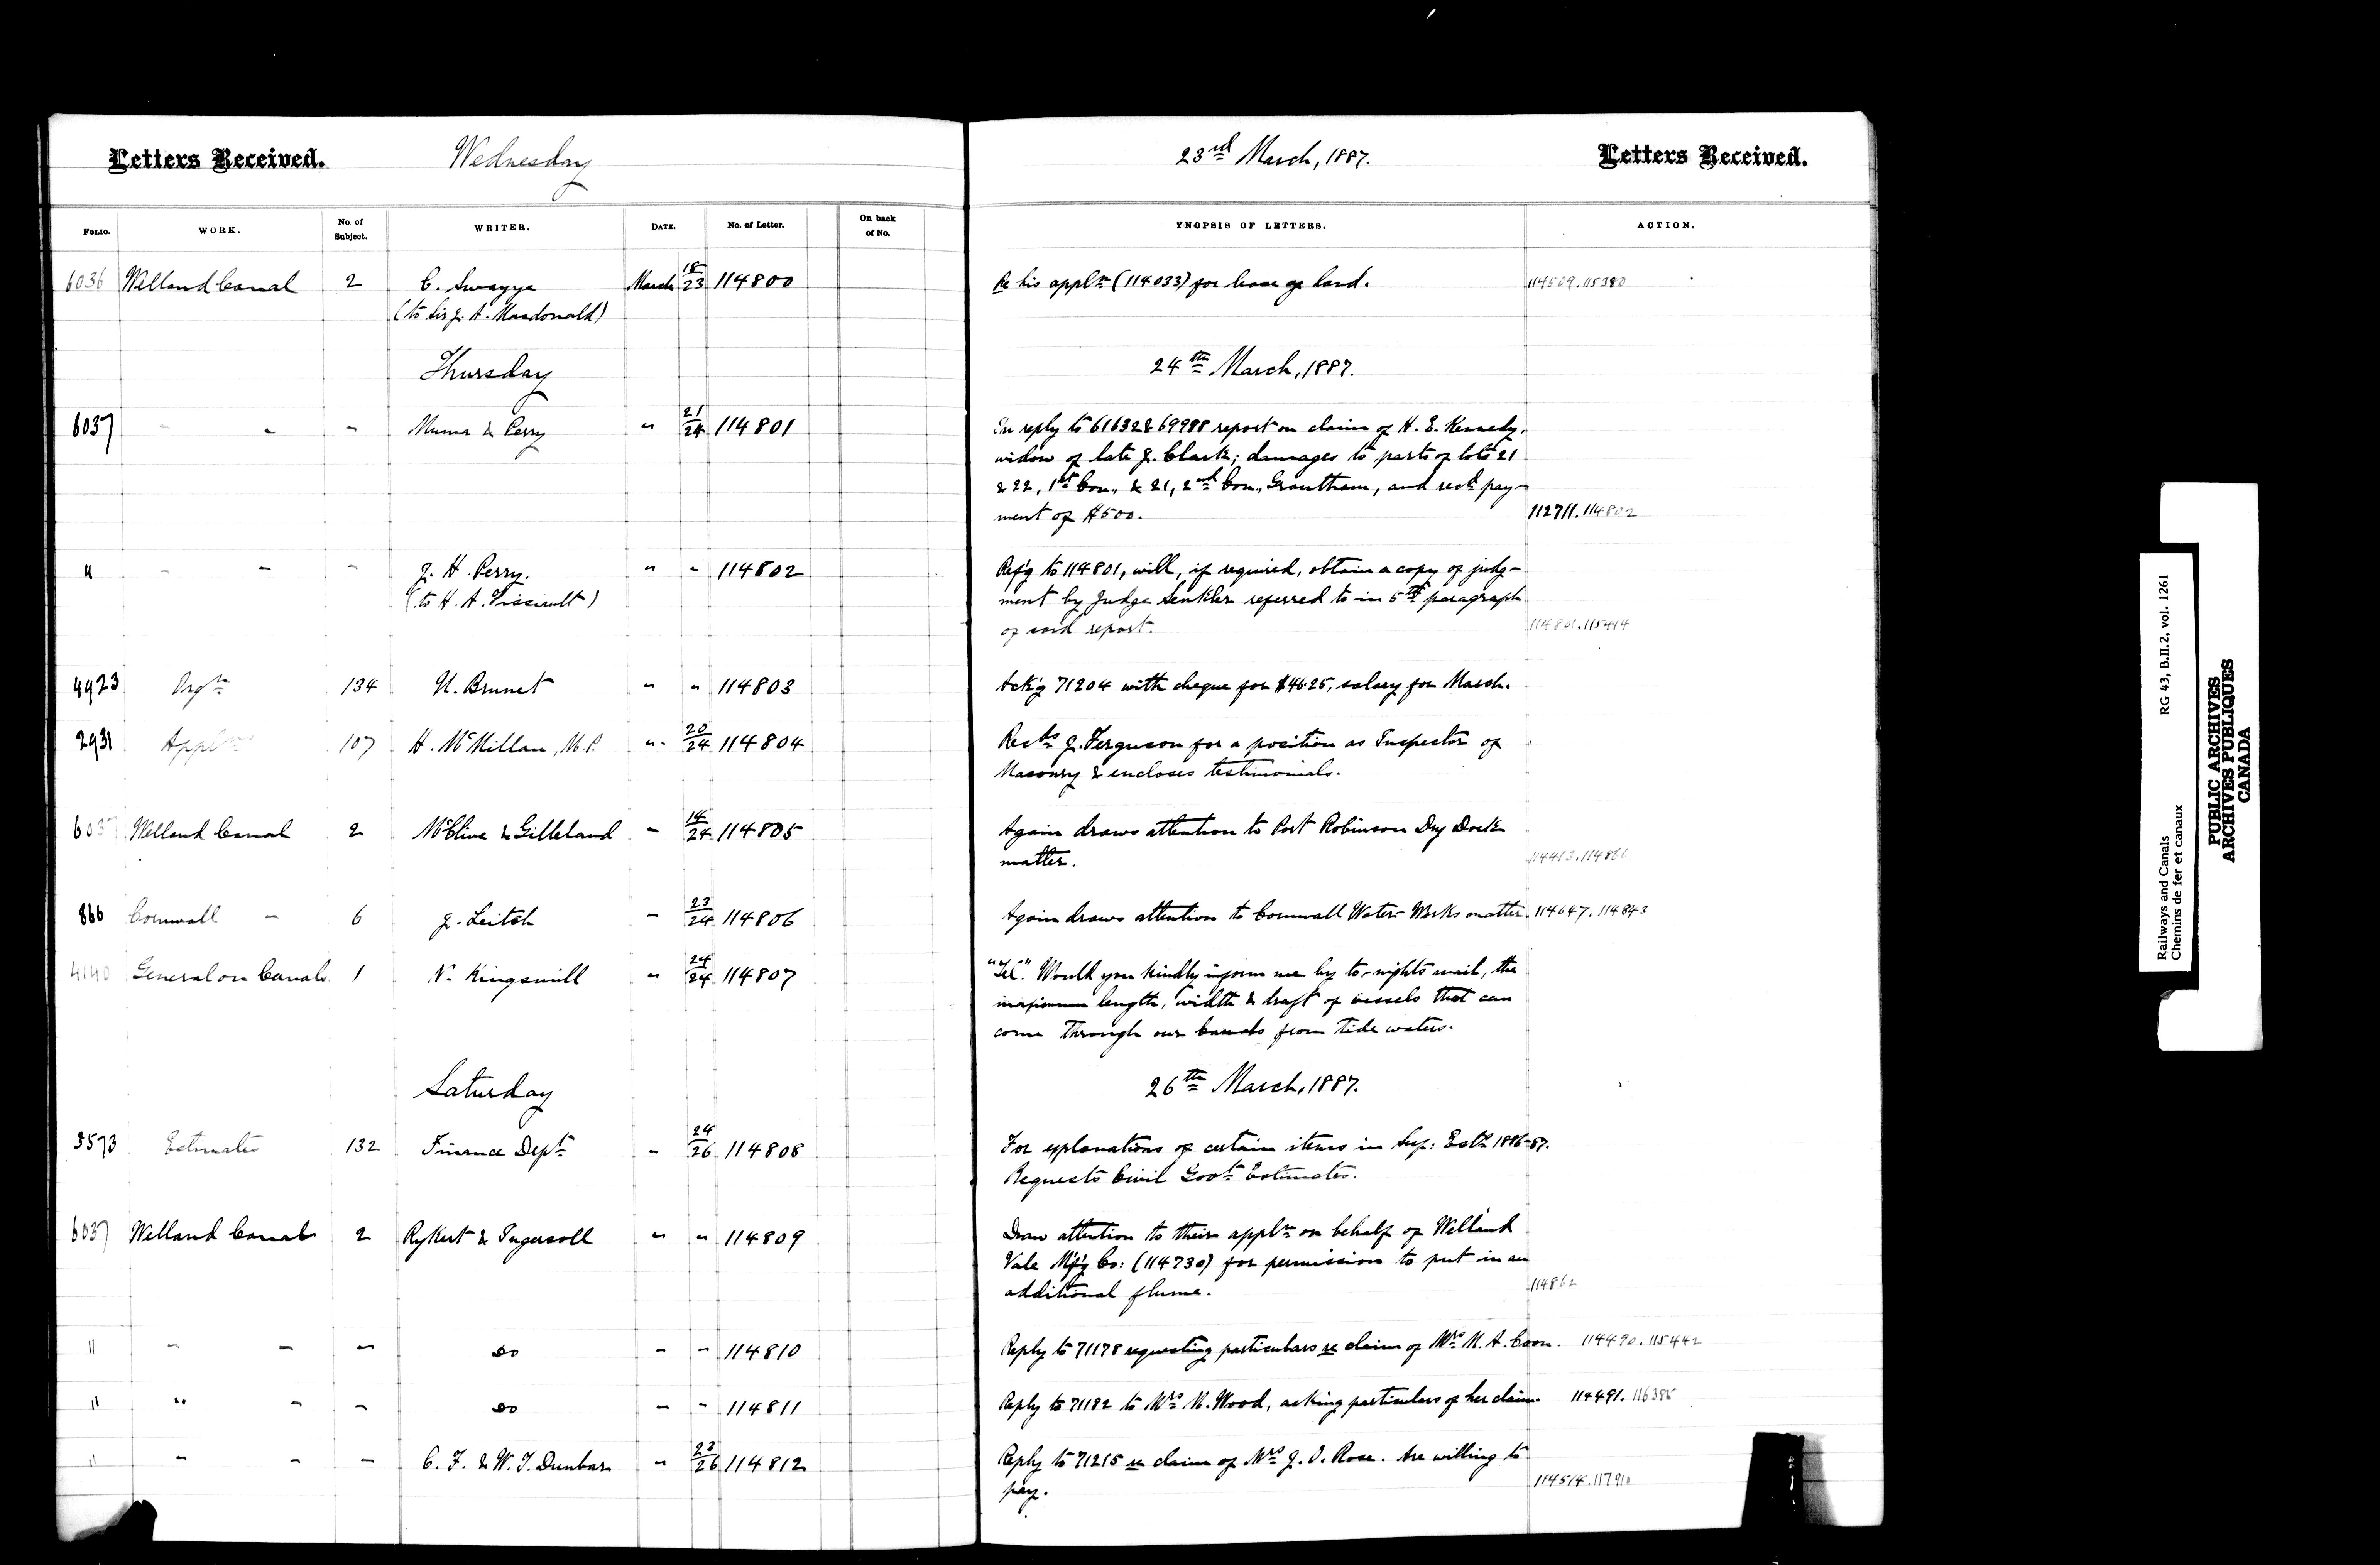 Letters Received. Wednesday 23rd March, 1887. Letters Received.
FOLIO. WORK. No. of Subject. WRITER. DATE. No. of Letter. On back of No. YNOPSIS OF LETTERS. ACTION.
6036 Welland Canal 2 C. Swayze March 18/23 114800 Re his appln (114033) for lease of land. 114509.115380
(to Sir J. A. Macdonald)
Thursday 24th March, 1887.
6037 " " " Munro & Perry " 21/24 114801 In reply to 61632 & 69988 report on claim of H. E. Kennedy,
widow of late J. Clark; damages to parts of lots 21
& 22, 1st Con., & 21, 2nd Con., Grantham, and recd pay-
ment of $500. 112711.114802
" " " " J. H. Perry. " " 114802 Ref'g to 114801, will, if required, obtain a copy of judg-
(to H. A. Fissiault) ment by Judge Senkler referred to in 5th paragraph
of said report. 114801.115414
4923 Orgn 134 N. Brunet " " 114803 Ack'g 71204 with cheque for $46.25, salary for March.
2931 Applns 107 H. McMillan, M.P. " 20/24 114804 Recds J. Ferguson for a position as Inspector of
Masonry & encloses testimonials.
6037 Welland Canal 2 McClive & Gilleland " 14/24 114805 Again draws attention to Port Robinson Dry Dock
matter. 114413.
866 Cornwall " 6 J. Leitch " 23/24 114806 Again draws attention to Cornwall Water-Works matter. 114647.114843
4140 General on Canals 1 N. Kingsmill " 24/24 114807 "Tel." Would you kindly inform me by to-nights mail, the
maximum length, width & draft of vessels that can
come through our canals from tide waters.
Saturday 26th March, 1887.
3573 Estimates 132 Finance Dept " 24/26 114808 For explanations of certain items in Sup: Ests 1886-87.
Requests Civil Govt Estimates.
6037 Welland Canal 2 Rykert & Ingersoll " " 114809 Draw attention to their appln on behalf of Welland
Vale Mfg Co: (114730) for permission to put in an
additional flume. 114862
" " " " do " " 114810 Reply to 71178 requesting particulars re claim of Mrs M. A. Coon. 114490.115442
" " " " do " " 114811 Reply to 71182 to Mrs M. Wood, asking particulars of her claim. 114491.116385
" " " " C. F. & W. T. Dunbar " 23/26 114812 Reply to 71215 re claim of Mrs J. O. Rose. Are willing to
pay. 114514.117910
Railways and Canals RG 43, B.II.2, vol. 1261
Chemins de fer et canaux
PUBLIC ARCHIVES
ARCHIVES PUBLIQUES
CANADA